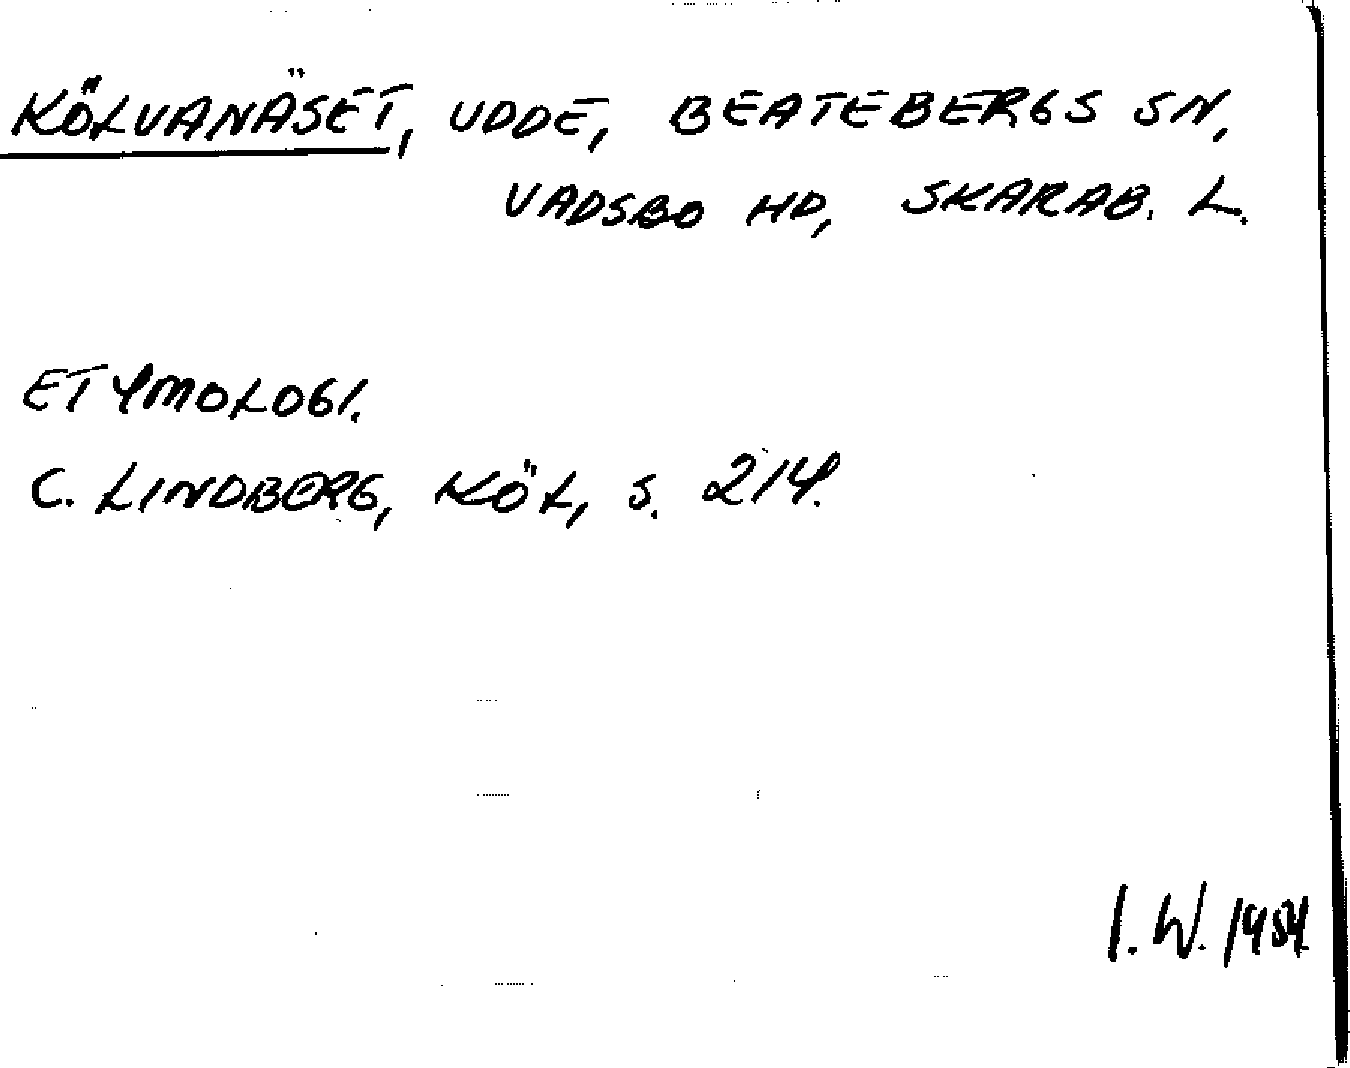 KÖLVANÄSET, UDDE, BEATEBERGS SN,
VADSBO HD, SKARAB. L.
ETYMOLOGI.
C. LINDBERG, KÖL, S. 214.
I. W. 1984.